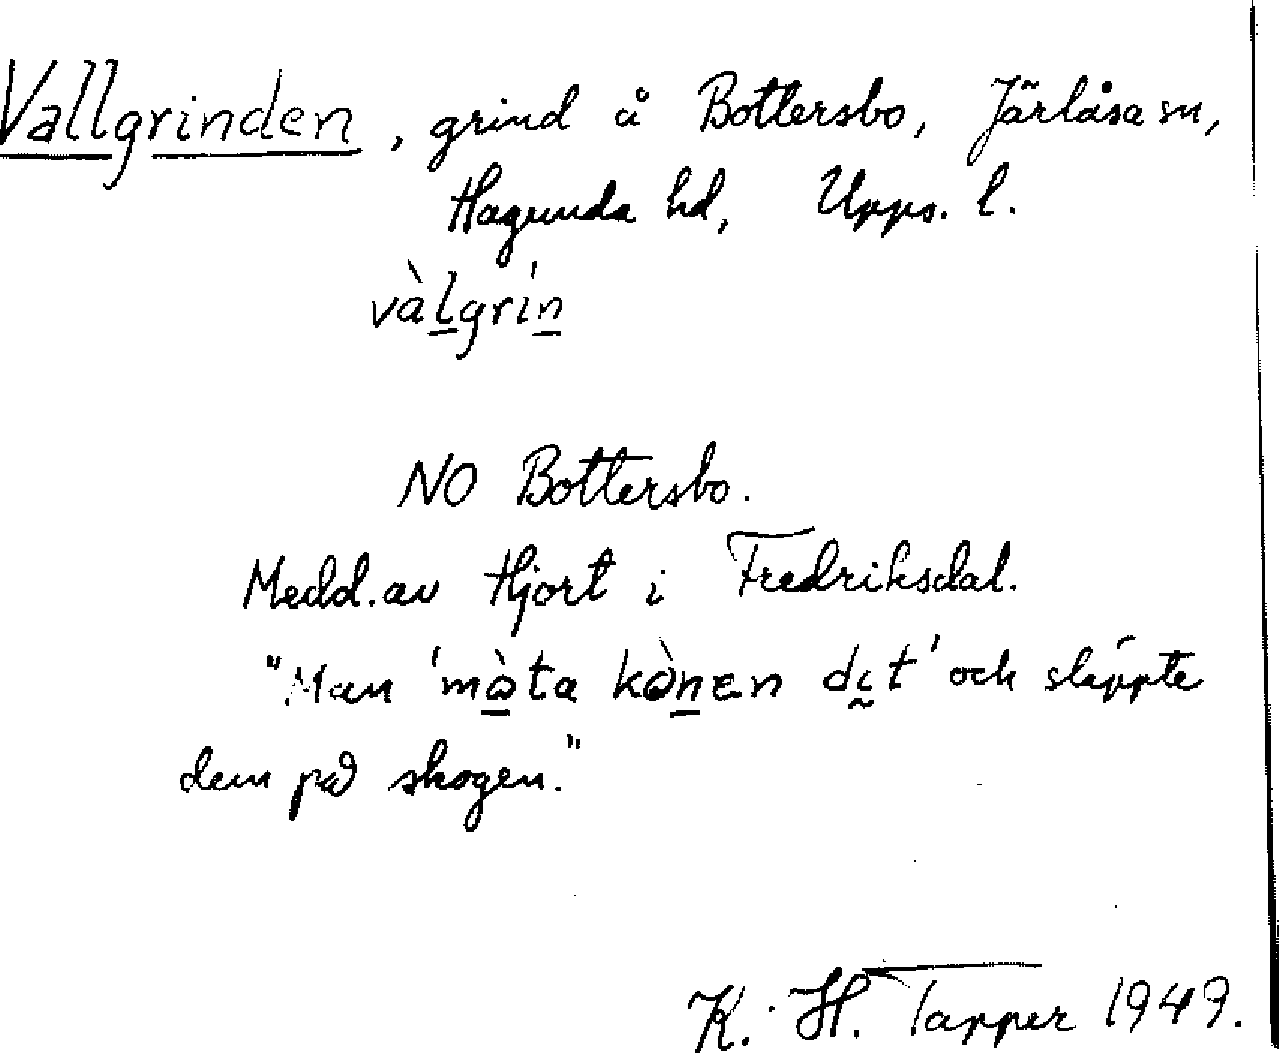 Vallgrinden, grind å Bottersbo, Järlåsa sn,
Hagunda hd, Upps. l.
vàlgrín
NO Bottersbo.
Medd. av Hjort i Fredriksdal.
"Man 'mòta kònen dit' och släppte
dem på skogen."
K. H. Tapper 1949.